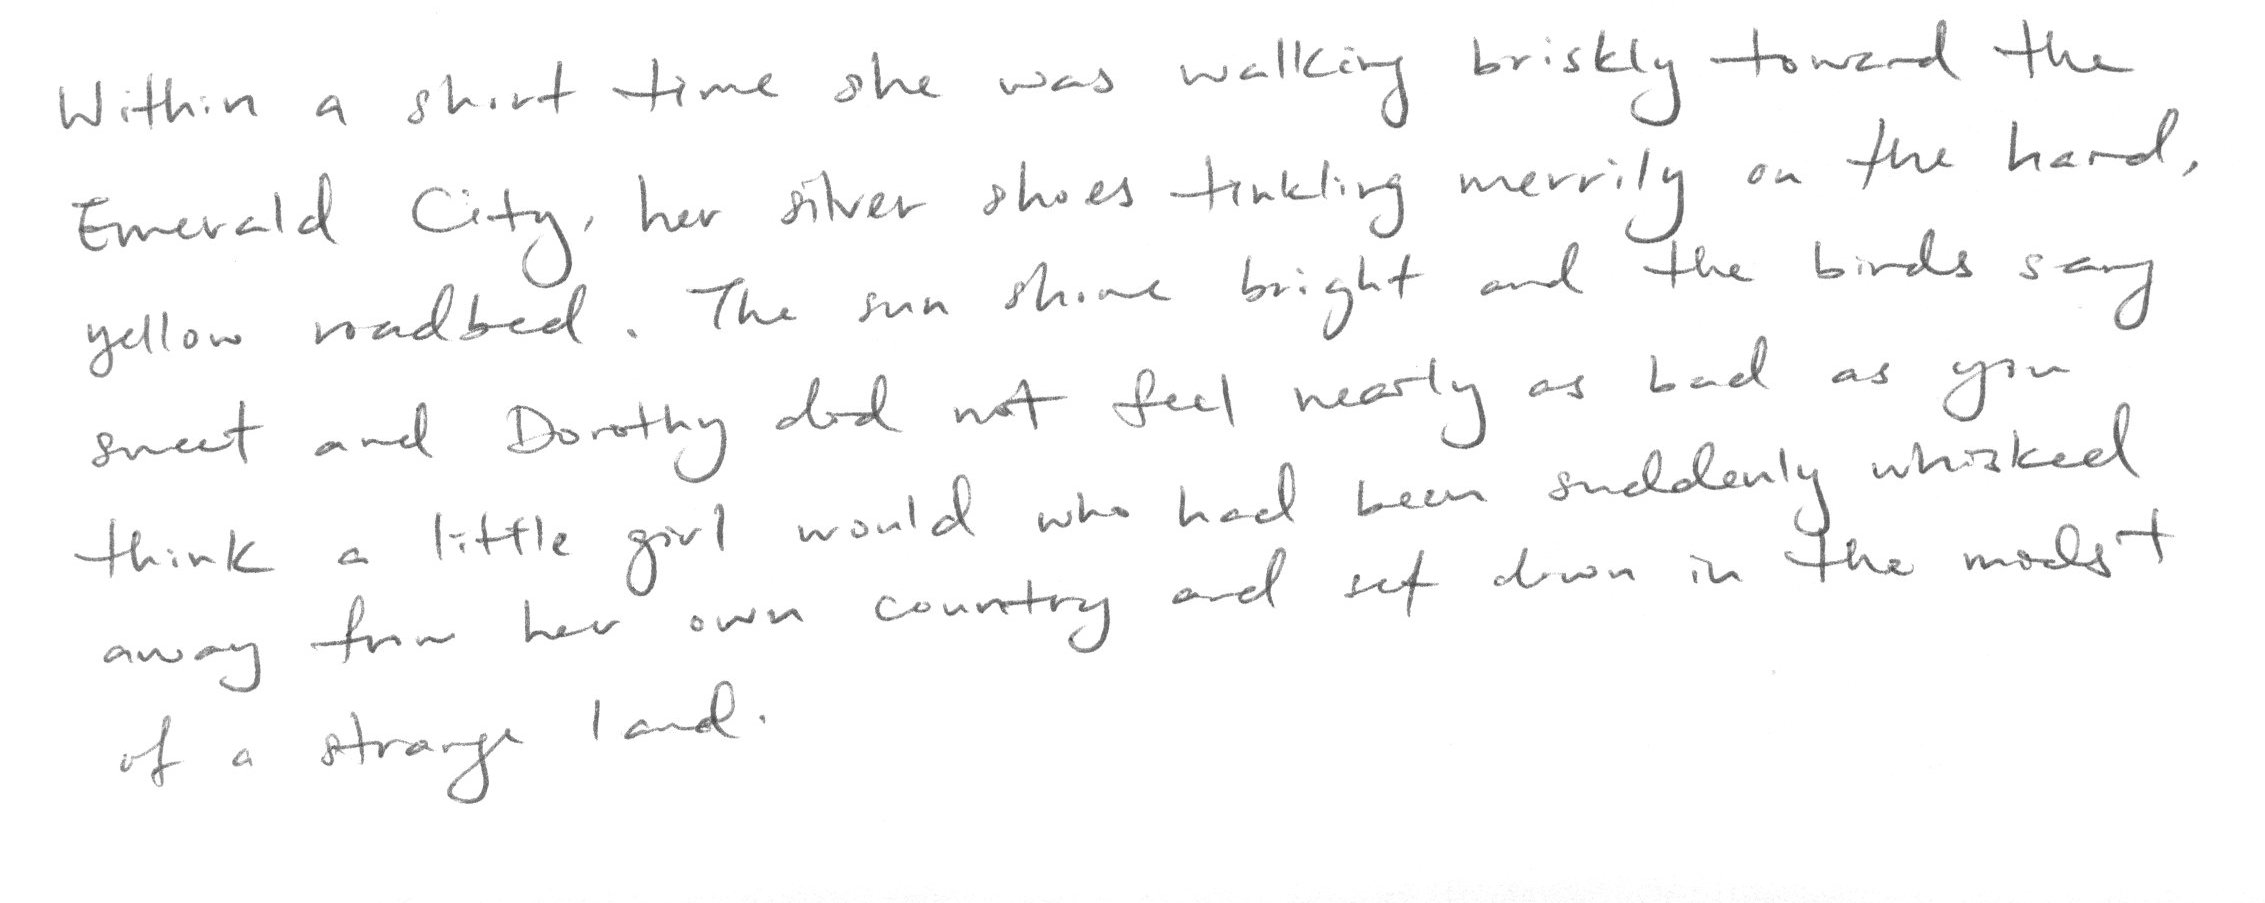 Within a short time she was walking briskly toward the
Emerald City, her silver shoes tinkling merrily on the hard,
yellow roadbed. The sun shone bright and the birds sang
sweet and Dorothy did not feel nearly as bad as you
think a little girl would who had been suddenly whisked
away from her own country and set down in the midst
of a strange land.